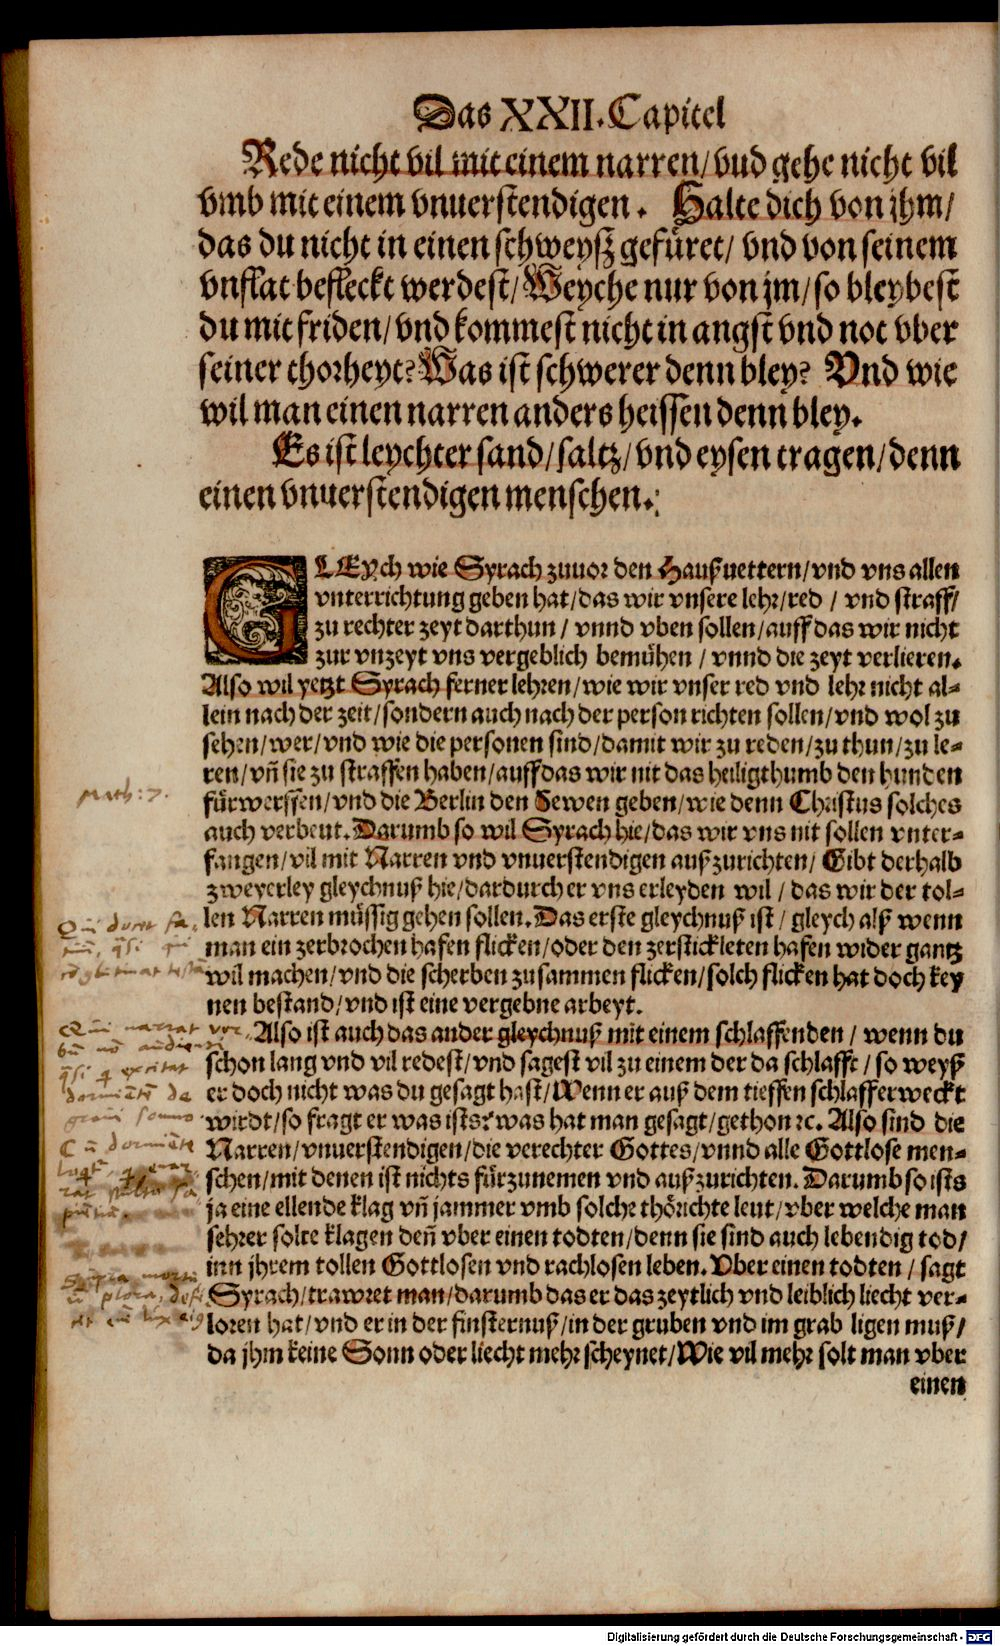 Das XXII. Capitel
Rede nicht vil mit einem narren/ vnd gehe nicht vil
vmb mit einem vnuerstendigen. Halte dich von jhm/
das du nicht in einen schweyß gefüret/ vnd von seinem
vnflat befleckt werdest/ Weyche nur von jm/ so bleybest
du mit friden/ vnd kommest nicht in angst vnd not vber
seiner thorheyt? Was ist schwerer denn bley? Vnd wie
wil man einen narren anders heissen denn bley.
Es ist leychter sand/ saltz/ vnd eysen tragen/ denn
einen vnuerstendigen menschen.
GLEych wie Syrach zuuor den Haußuettern/ vnd vns allen
vnterrichtung geben hat/ das wir vnsere lehr/ red / vnd straff/
zu rechter zeyt darthun / vnnd vben sollen/ auff das wir nicht
zur vnzeyt vns vergeblich bemühen / vnnd die zeyt verlieren.
Also wil yetzt Syrach ferner lehren/ wie wir vnser red vnd lehr nicht al=
lein nach der zeit/ sondern auch nach der person richten sollen/ vnd wol zu
sehen/ wer/ vnd wie die personen sind/ damit wir zu reden/ zu thun/ zu le=
ren/ vñ sie zu straffen haben/ auff das wir nit das heiligthumb den hunden
fürwerffen/ vnd die Berlin den Sewen geben/ wie denn Christus solches
auch verbeut. Darumb so wil Syrach hie/ das wir vns nit sollen vnter=
fangen/ vil mit Narren vnd vnuerstendigen außzurichten/ Gibt derhalb
zweyerley gleychnuß hie/ dardurch er vns erleyden wil / das wir der tol=
len Narren müssig gehen sollen. Das erste gleychnuß ist / gleych alß wenn
man ein zerbrochen hafen flicken/ oder den zerstickleten hafen wider gantz
wil machen/ vnd die scherben zusammen flicken/ solch flicken hat doch key
nen bestand/ vnd ist eine vergebne arbeyt.
Also ist auch das ander gleychnuß mit einem schlaffenden / wenn du
schon lang vnd vil redest/ vnd sagest vil zu einem der da schlafft / so weyß
er doch nicht was du gesagt hast/ Wenn er auß dem tieffen schlaff erweckt
wirdt/ so fragt er was ists? was hat man gesagt/ gethon ꝛc. Also sind die
Narren/ vnuerstendigen/ die verechter Gottes/ vnnd alle Gottlose men=
schen/ mit denen ist nichts fürzunemen vnd außzurichten. Darumb so ists
ja eine ellende klag vñ jammer vmb solche thörichte leut/ vber welche man
sehrer solte klagen deñ vber einen todten/ denn sie sind auch lebendig tod/
inn jhrem tollen Gottlosen vnd rachlosen leben. Vber einen todten / sagt
Syrach/ trawret man/ darumb das er das zeytlich vnd leiblich liecht ver=
loren hat/ vnd er in der finsternuß/ in der gruben vnd im grab ligen muß/
da jhm keine Sonn oder liecht mehr scheynet/ Wie vil mehr solt man vber
einen
Math: 7.
Qui docet fa
tuū, q̄si qui
Qui narrat ver
bū nō audienti
q̄si q̄ excitat
dormiētē de
graui somno
Cū dormiēte
Supra mortu
ū plora, defe
cit eni lux eiꝯ
Digitalisierung gefördert durch die Deutsche Forschungsgemeinschaft - DFG